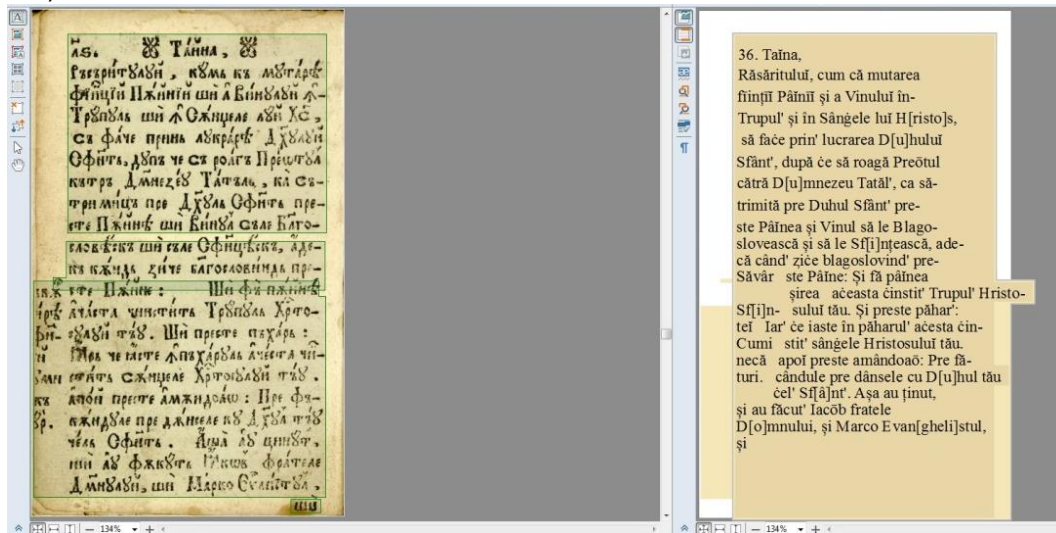 л҃ѕ. Та́йна,
Ръсъри́тꙋлꙋй, кꙋмь къ мꙋта́рѣ
фїи́нцїй Пѫ́йнїй ши а Ви́нꙋлꙋй ꙟ-
Трꙋ́пꙋль ши ꙟ Сѫ́нџеле лꙋй Х҃с,
съ фа́че принь лꙋкра́рѣ Д҃хꙋлꙋй
Сфи́нть, дꙋпъ че съ роа́гъ Прео́тꙋл
кътръ Дм҃незеꙋ Та́тъль, ка съ-
три́мицъ пре Д҃хꙋль Сфи́нть пре-
сте Пѫ́йнѣ ши Ви́нꙋл съле Бл҃го-
словѣ́скъ ши съле Сфи҃цѣ́скъ, а́де-
къ кѫ́ндь зи́че благослови́ндь пре-
сте Пѫ́йне: Ши фъ пѫ́йнѣ
ача́ста чинсти́ть Трꙋ́пꙋль Хр҃то-
сꙋлꙋй тъꙋ. Ши престе пъха́рь:
Ꙗ́рь че ꙗ́сте ꙟпъха́рꙋль аче́ста чин-
сти́ть сѫ́нџеле Хр҃то́сꙋлꙋй тъꙋ.
апо́й престе амѫндоаѡ: Пре фъ-
кѫ́ндꙋле пре дѫ́нселе кꙋ Д҃хꙋл тъꙋ
чель Сфи́нть. Аша́ аꙋ цинꙋ́т,
ши аꙋ фъкꙋ́ть Ꙗ́кѡв фра́теле
Дм҃нꙋлꙋй, ши Ма́рко Єѵ҃ли́стꙋл,
ши
36. Taĭna,
Răsărituluĭ, cum că mutarea
ființiĭ Pâĭniĭ și a Vinuluĭ în-
Trupul' și în Sânģele luĭ H[risto]s,
să faċe prin' lucrarea D[u]huluĭ
Sfânt', după ċe să roagă Preōtul
cătră D[u]mnezeu Tatăl', ca să-
trimită pre Duhul Sfânt' pre-
ste Pâĭnea și Vinul să le Blago-
slovească și să le Sf[i]nțească, ade-
că când' ziċe blagoslovind' pre-
Săvâr ste Pâĭne: Și fă pâĭnea
șirea aċeasta ċinstit' Trupul' Hristo-
Sf[i]n- suluĭ tău. Și preste păhar':
teĭ Iar' ċe iaste în păharul' aċesta ċin-
Cumi stit' sânģele Hristosuluĭ tău.
necă apoĭ preste amândoaō: Pre fă-
turi. cândule pre dânsele cu D[u]hul tău
ċel' Sf[â]nt'. Așa au ținut,
și au făcut' Iacōb fratele
D[o]mnului, și Marco Evan[gheli]stul,
și
134%
134%